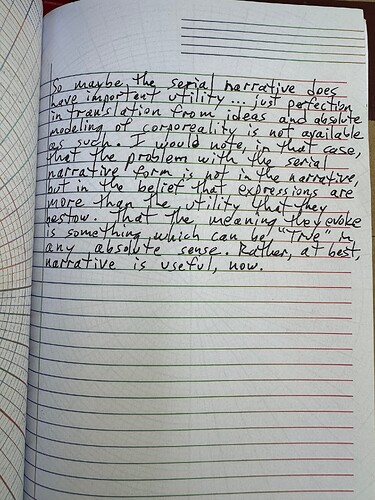 So maybe the serial narrative does
have important utility... just perfection
in translation from ideas and absolute
modeling of corporeality is not available
as such. I would note, in that case,
that the problem with the serial
narrative form is not in the narrative,
but in the belief that expressions are
more than the utility that they
bestow. That the meaning they evoke
is something which can be "true" in
any absolute sense. Rather, at best,
narrative is useful, now.